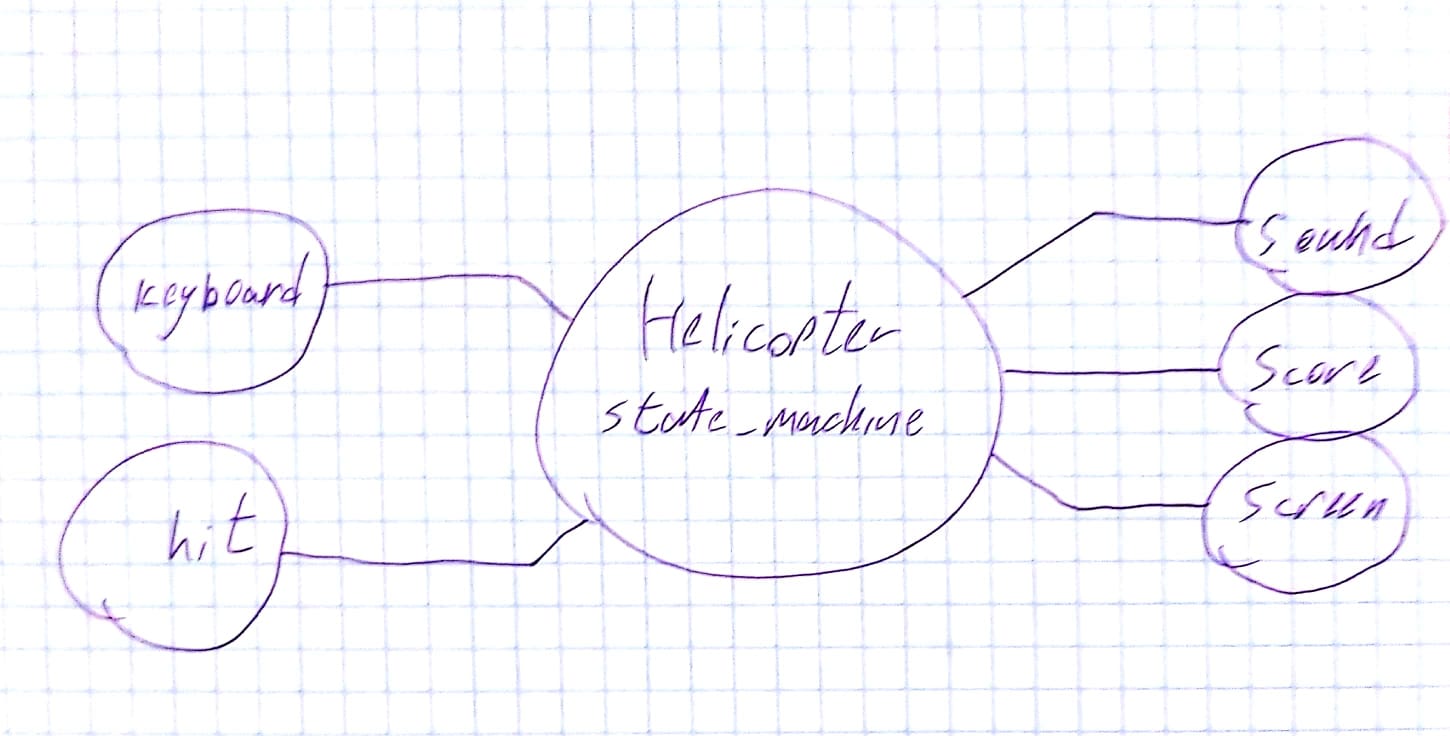 keyboard
hit
Helicopter
state_machine
Sound
Score
Screen